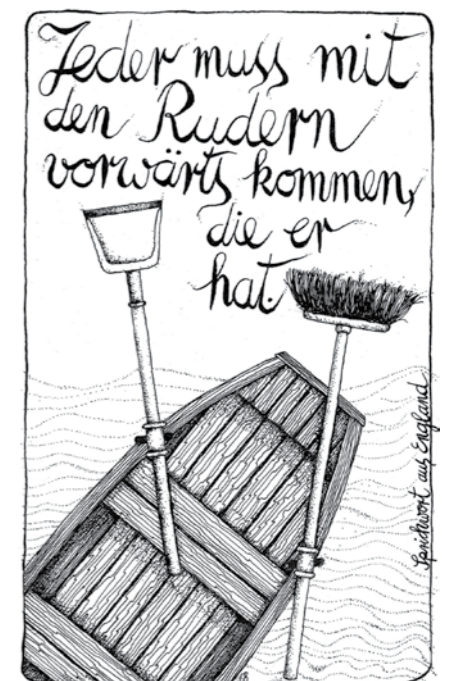 Jeder muss mit
den Rudern
vorwärts kommen,
die er
hat.
Sprichwort aus England